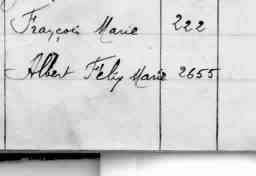 François Marie 222
Albert Félix Marie 2655